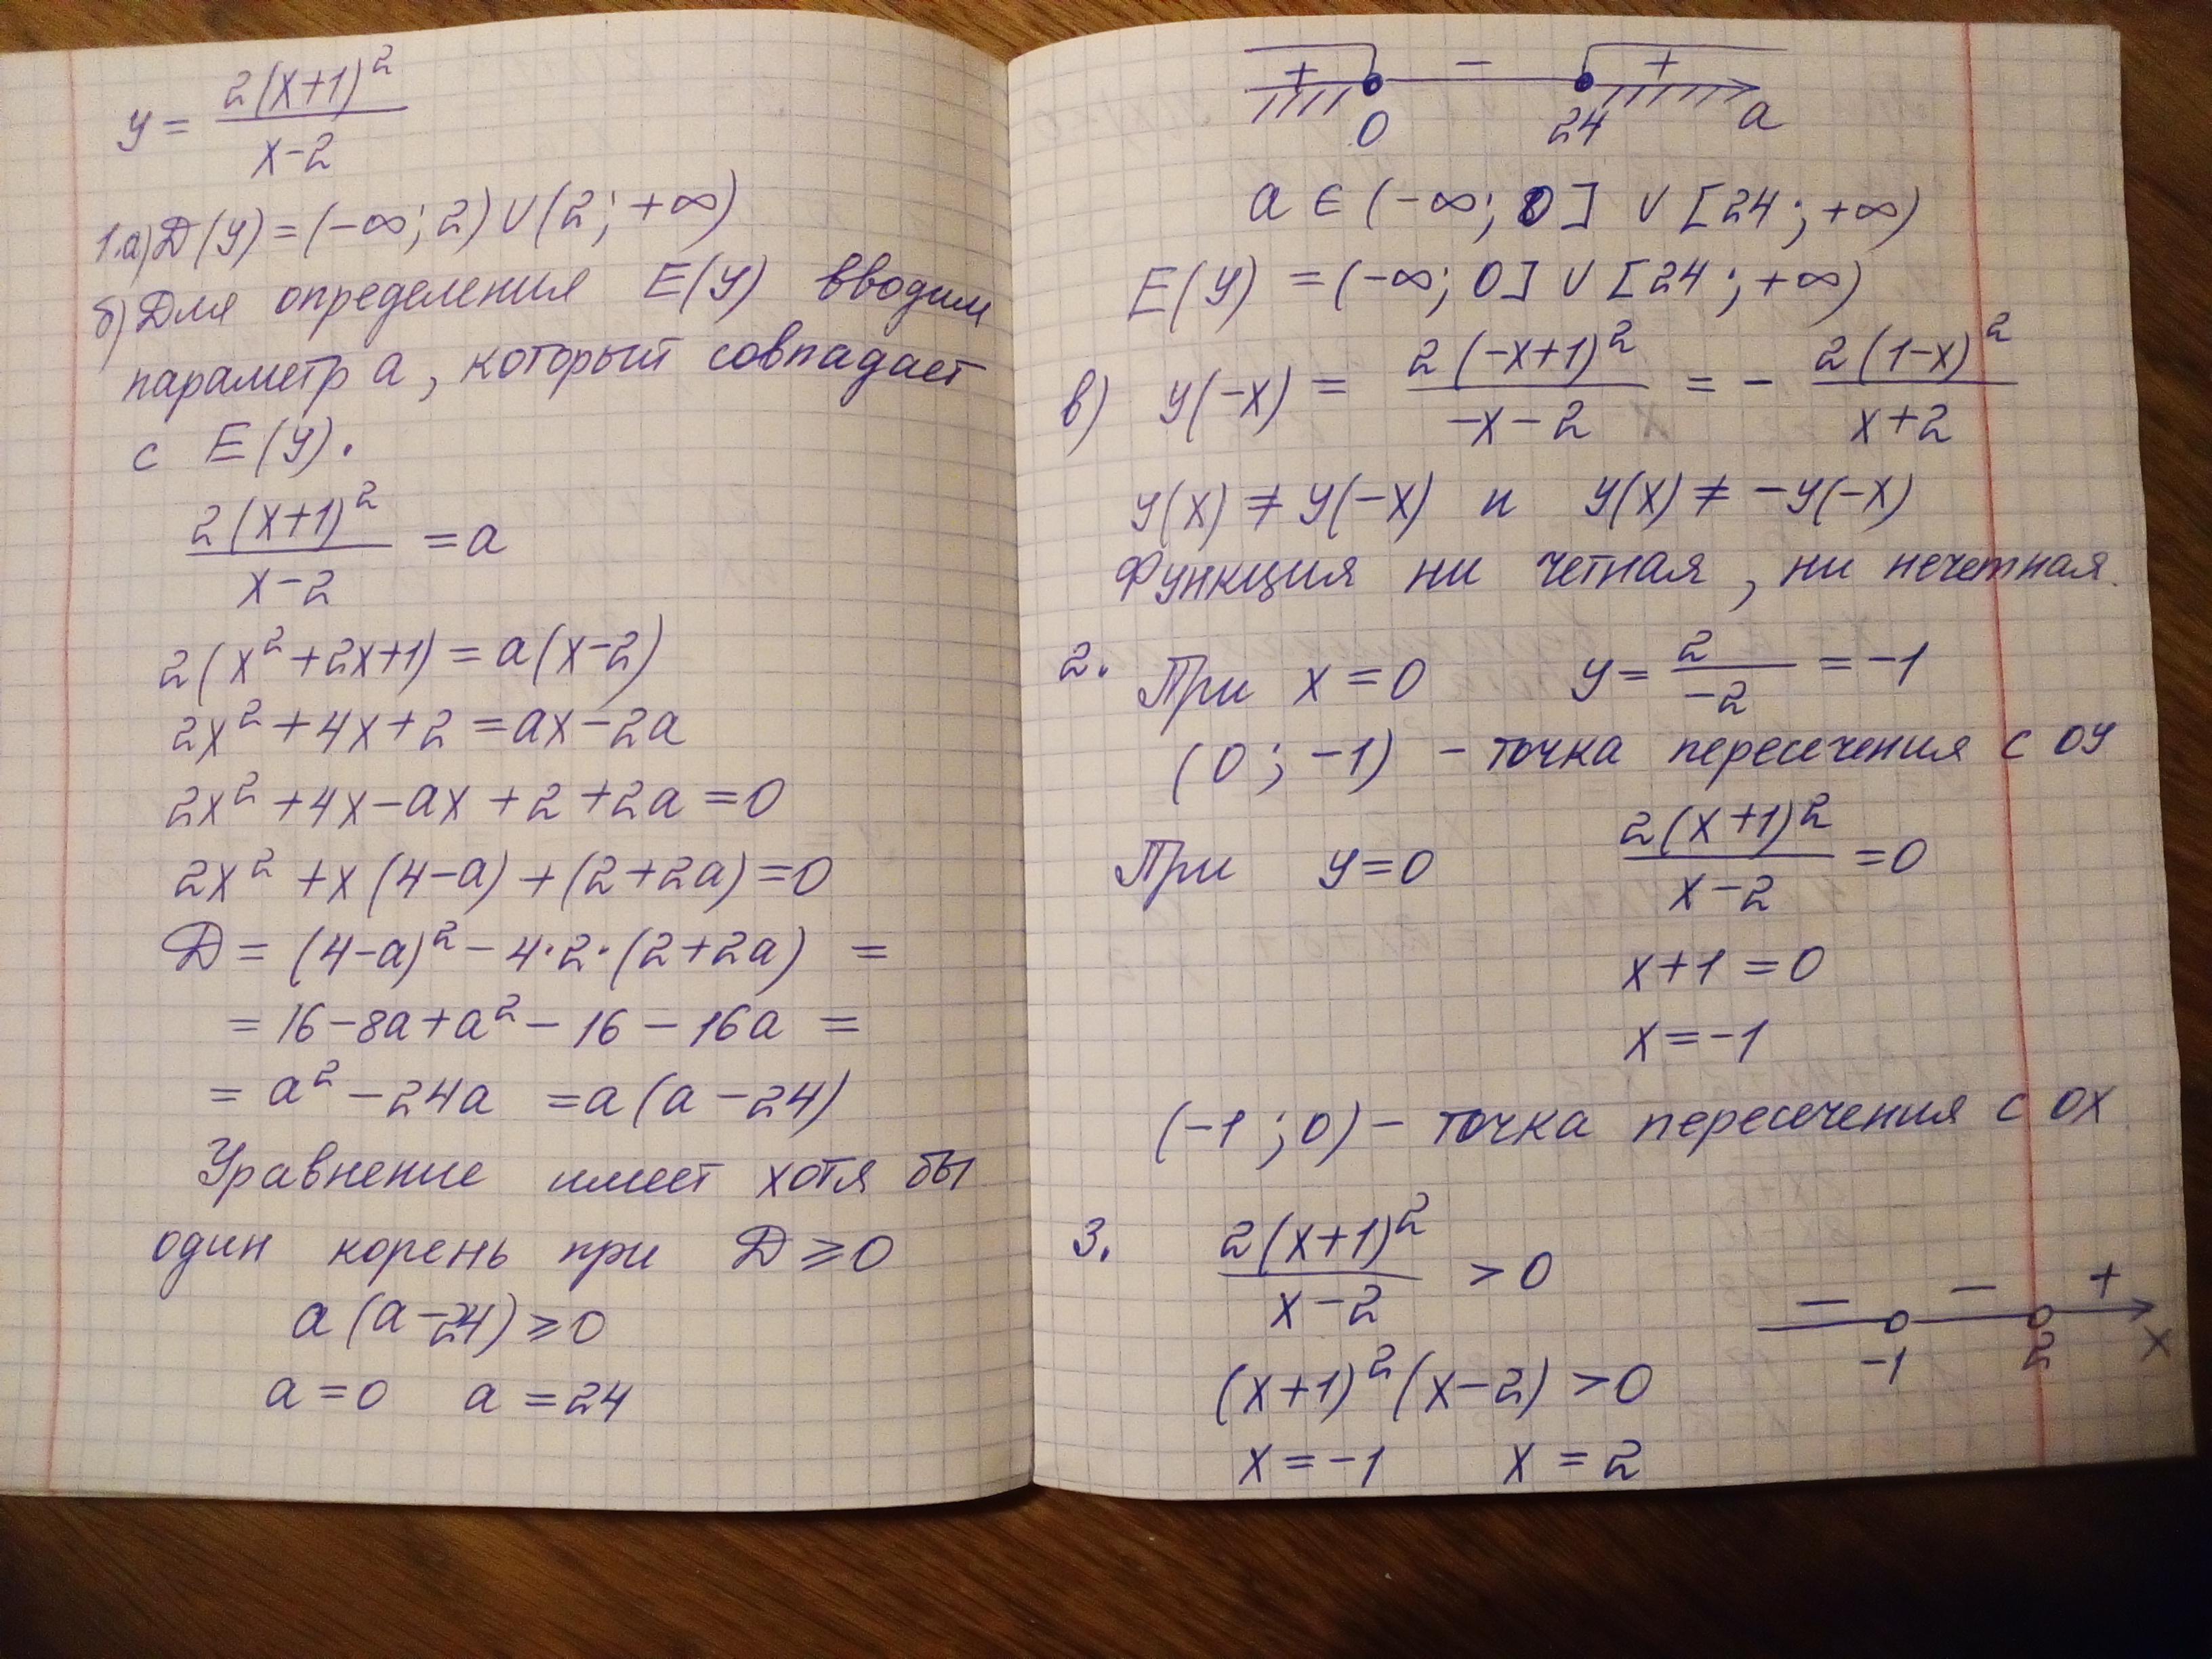 y = 2(x+1)² / x-2
1.а) D(y) = (-∞; 2) ∪ (2; +∞)
б) Для определения E(y) вводим
параметр a, который совпадает
с E(y).
2(x+1)² / x-2 = a
2(x²+2x+1) = a(x-2)
2x²+4x+2 = ax-2a
2x²+4x-ax+2+2a=0
2x²+x(4-a)+(2+2a)=0
D = (4-a)²-4·2·(2+2a) =
= 16-8a+a²-16-16a =
= a²-24a = a(a-24)
Уравнение имеет хотя бы
один корень при D ≥ 0
a(a-24) ≥ 0
a=0 a=24
+ - +
0 24 a
a ∈ (-∞; 0] ∪ [24; +∞)
E(y) = (-∞; 0] ∪ [24; +∞)
в) y(-x) = 2(-x+1)² / -x-2 = - 2(1-x)² / x+2
y(x) ≠ y(-x) и y(x) ≠ -y(-x)
Функция ни четная, ни нечетная.
2. При x=0 y = 2 / -2 = -1
(0; -1) - точка пересечения с OY
При y=0 2(x+1)² / x-2 = 0
x+1=0
x=-1
(-1; 0) - точка пересечения с OX
3. 2(x+1)² / x-2 > 0
- - +
-1 2 x
(x+1)²(x-2) > 0
x=-1 x=2